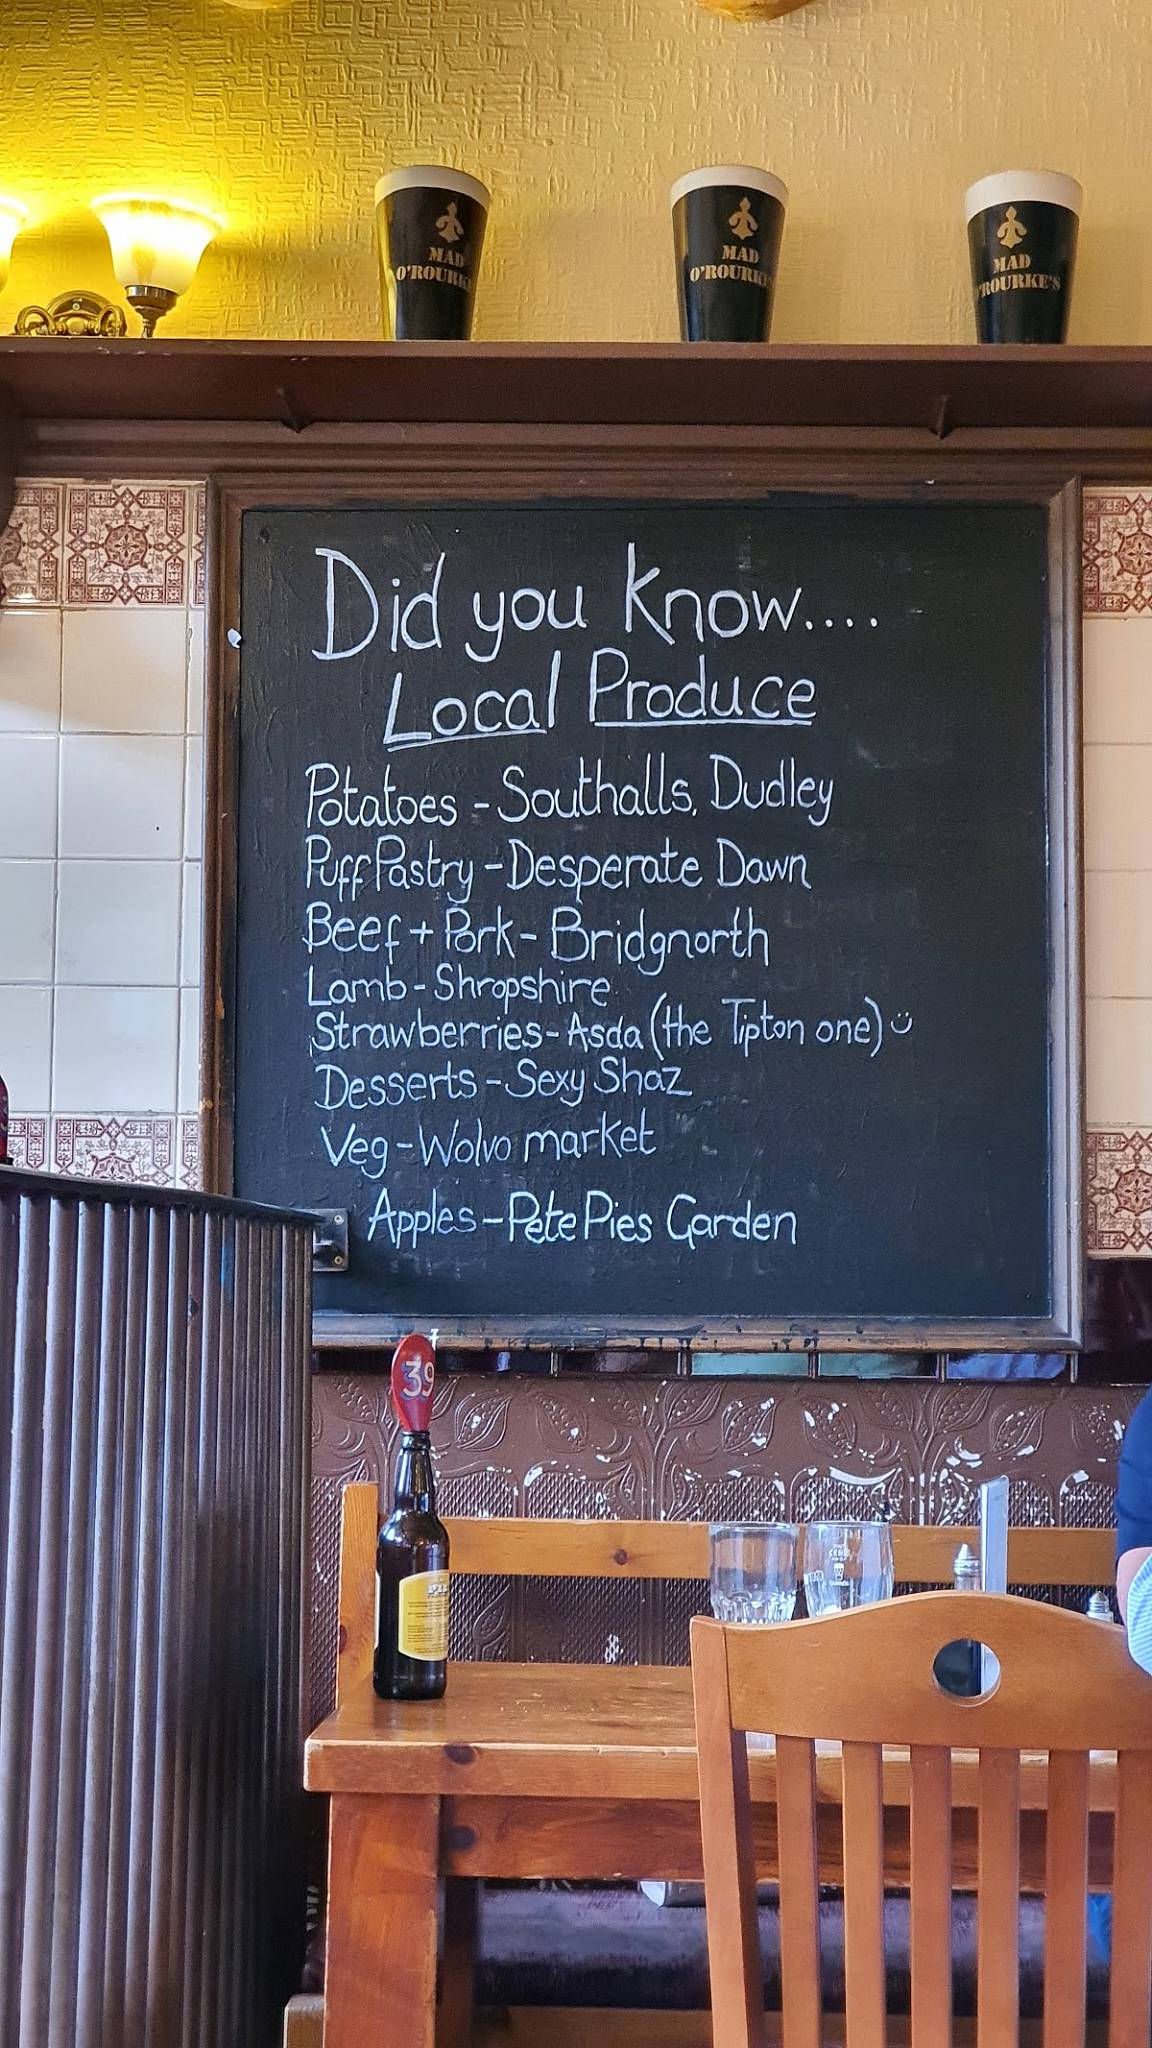 MAD
O'ROURKE
MAD
O'ROURKE'
MAD
O'ROURKE'S
Did you know....
Local Produce
Potatoes - Southalls, Dudley
Puff Pastry - Desperate Dawn
Beef + Pork - Bridgnorth
Lamb - Shropshire
Strawberries - Asda (the Tipton one)
Desserts - Sexy Shaz
Veg - Wolvo market
Apples - Pete Pies Garden
39